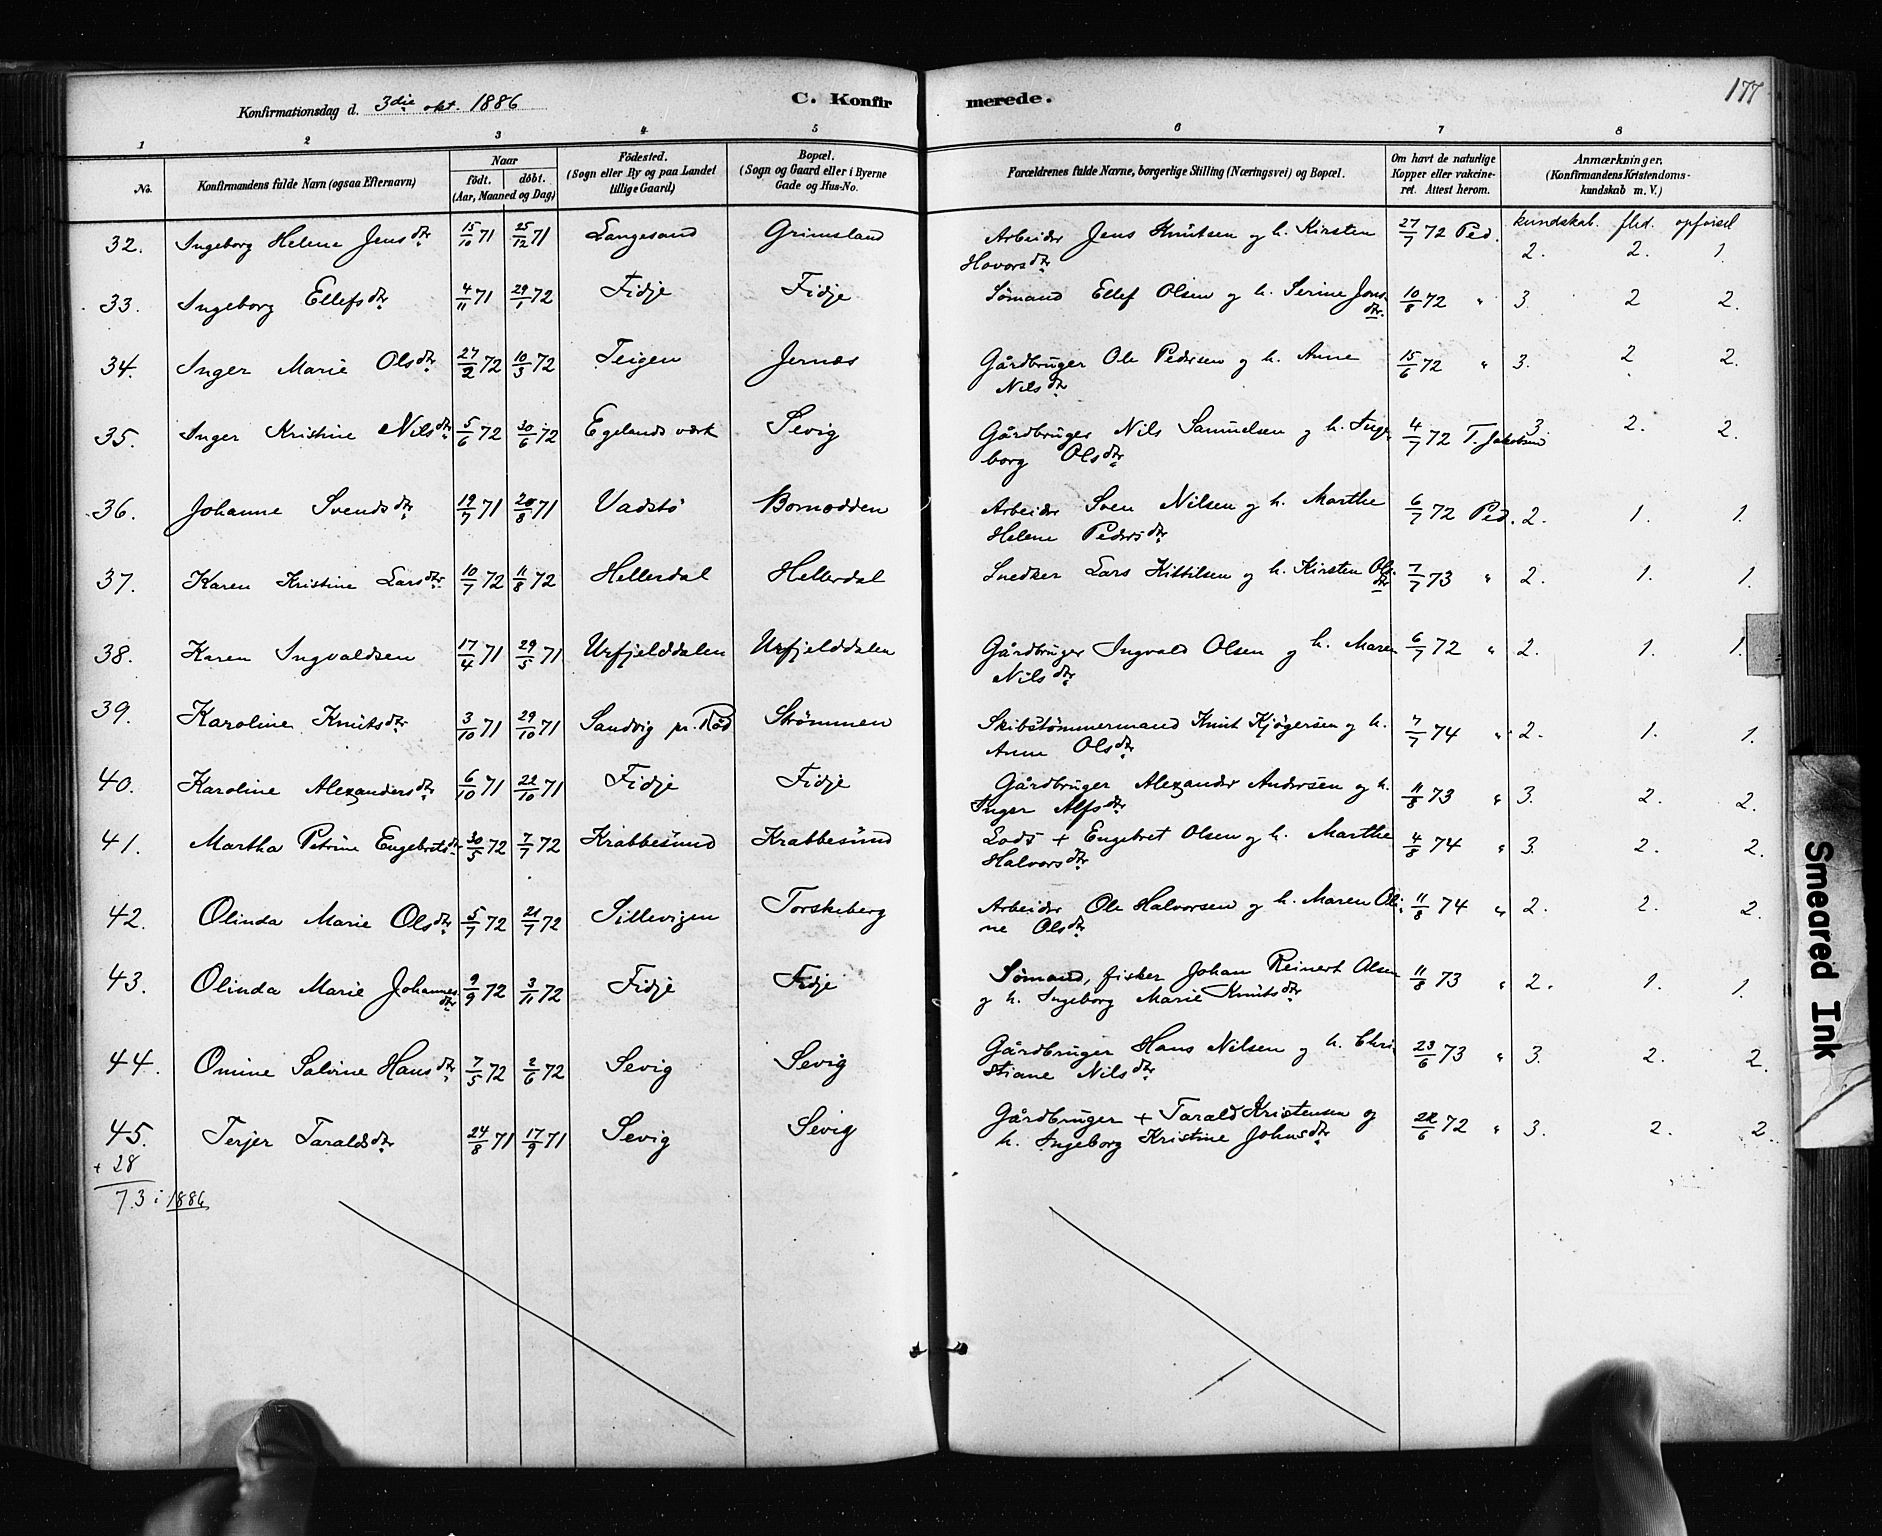 Konfirmationsdag d. 3die okt. 1886 C. Konfirmerede. 177
1 2 3 4 5 6 7 8
No. Konfirmandens fulde Navn (ogsaa Efternavn) Naar födt. döbt. (Aar, Maaned og Dag) Födested. (Sogn eller By og paa Landet tillige Gaard) Bopæl. (Sogn og Gaard eller i Byerne Gade og Hus-No. Forældrenes fulde Navne, borgerlige Stilling (Næringsvei) og Bopæl. Om havt de naturlige Kopper eller vakcineret. Attest herom. Anmærkninger. (Konfirmandens Kristendomskundskab m. V.)
kundskab. flid. opførsel
32. Ingeborg Helene Jensdtr 15/10 71 25/12 71 Langesand Grimsland Arbeider Jens Knutsen og h. Kirsten 27/7 72 Ped. 2. 2. 1.
Hovorsdtr
33. Ingeborg Ellefsdtr 4/11 71 29/1 72 Fidje Fidje Sømand Ellef Olsen og h. Serine Jensdtr. 10/8 72 " 3. 2 2.
34. Inger Marie Olsdtr 27/2 72 10/3 72 Teigen Jernæs Gårdbruger Ole Pedersen og h. Anne 15/6 72 " 3. 2 2.
Nilsdtr
35. Inger Kristine Nilsdtr 5/6 72 30/6 72 Egelands værk Sevig Gårdbruger Nils Samuelsen og h. Inge- 4/7 72 T. Jakobsen 3. 2. 2.
borg Olsdtr
36. Johanne Svendsdtr 19/7 71 20/8 71 Vadstø Bornodden Arbeider Sven Nilsen og h. Marthe 6/7 72 Ped. 2. 1. 1.
Helene Pedersdtr
37. Karen Kristine Larsdtr 10/7 72 11/8 72 Hellerdal Hellerdal Snedker Lars Kittilsen og h. Kirsten Olsdtr 7/7 73 " 2. 1. 1.
38. Karen Ingvaldsen 17/4 71 29/5 71 Urfjelddalen Urfjelddalen Gårdbruger Ingvald Olsen og h. Maren 6/7 72 " 2. 1. 1.
Nilsdtr
39. Karoline Knutsdtr 3/10 71 29/10 71 Sandvig pr. Röd Strømmen Skibstømmermand Knut Kjøgersen og h. 7/7 74 " 2. 1. 1.
Anne Olsdtr
40. Karoline Alexandersdtr 6/10 71 22/10 71 Fidje Fidje Gårdbruger Alexander Andersen og h. 11/8 73 " 3. 2. 2.
Inger Alfsdtr
41. Martha Petrine Engebretsdtr 30/5 72 7/7 72 Krabbesund Krabbesund Lods + Engebret Olsen og h. Marthe 4/8 74 " 3. 2. 2.
Halvorsdtr
42. Olinda Marie Olsdtr 5/7 72 21/7 72 Sillevigen Torskeberg Arbeider Ole Halvorsen og h. Maren Oli- 11/8 74 " 2. 2. 2.
ne Olsdtr
43. Olinda Marie Johannesdtr 9/9 72 3/11 72 Fidje Fidje Sømand, fisker Johan Reinert Olsen 11/8 73 " 2. 1. 1.
og h. Ingeborg Marie Knutsdtr
44. Omine Salvine Hansdtr 7/5 72 2/6 72 Sevig Sevig Gårdbruger Hans Nilsen og h. Chri- 23/6 73 " 3. 2. 2.
stiane Nilsdtr
45. Terjer Taraldsdtr 24/8 71 17/9 71 Sevig Sevig Gårdbruger + Tarald Kristensen og 22/6 72 " 3. 2. 2.
h. Ingeborg Kristine Johnsdtr
+ 28
73 i 1886
Smeared Ink